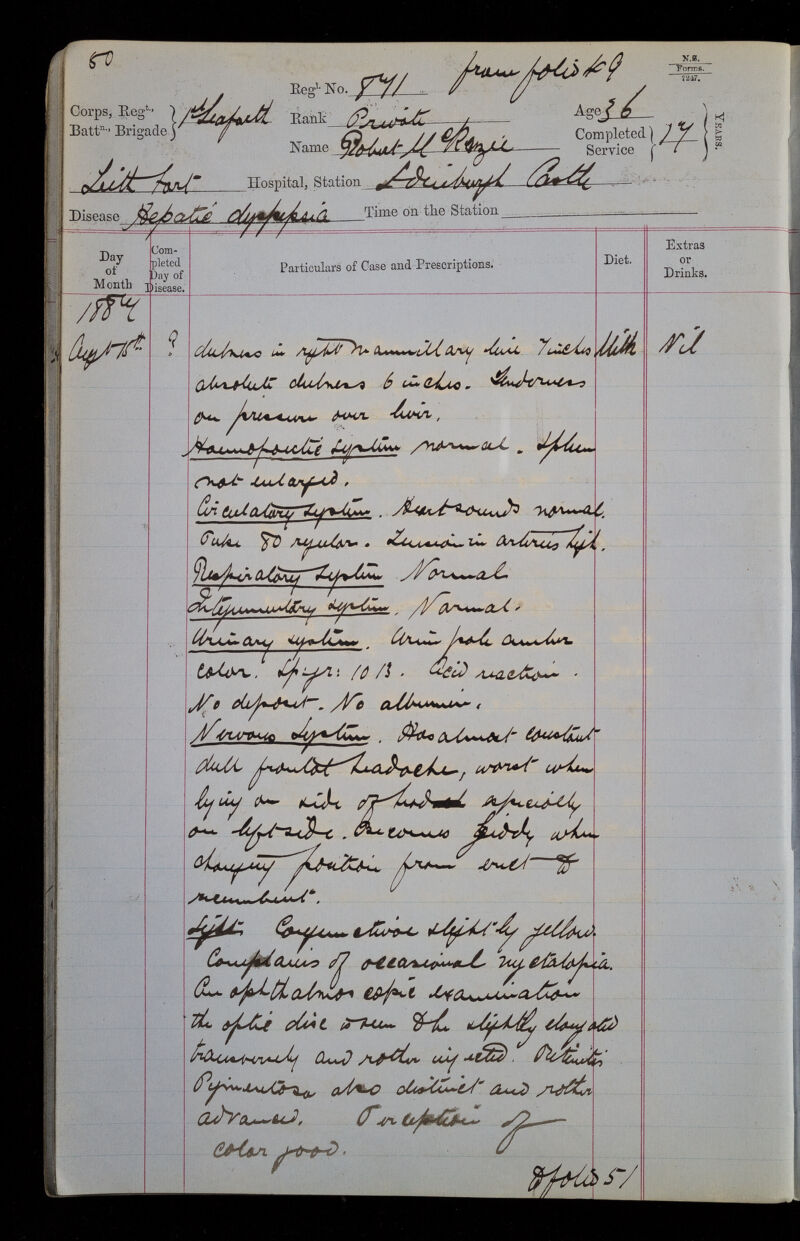 50
from folio 49
N.B.
Forms.
7247.
Regl. No. 841
Corps, Regt., Battn., Brigade } 1st Seaforth
Rank Private
Age 36
Name Robert McKenzie
Completed Service } 17 { YEARS.
Leith Fort Hospital, Station Edinburgh Castle
Disease Hepatic dyspepsia Time on the Station
Day of Month
Completed Day of Disease.
Particulars of Case and Prescriptions.
Diet.
Extras or Drinks.
1884
Augt 15th ? dulness in right mammillary line 7 inches Milk Nil
absolute dulness 6 inches. Tenderness
on pressure over liver.
Haemopoietic System normal. Spleen
not enlarged.
Circulatory System. Heart sounds normal.
Pulse 80 regular. Tension in arteries high.
Respiratory System Normal
Integumentary system. Normal.
Urinary system. Urine pale amber
color. Sp: gr: 1013. Acid reaction.
No deposit. No albumen.
Nervous System. Has almost constant
dull frontal headache, worst when
lying on side of head especially
on left side. Becomes giddy when
changing position from erect to
recumbent.
Sight Conjunctivae slightly yellow.
Complains of occasional nyctalopia.
On ophthalmoscopic examination
the optic disc is seen to be slightly elongated
transversely and rather injected. Retinitis
Pigmentosa also distinct and rather
advanced. Perception of
color good.
To folio 51